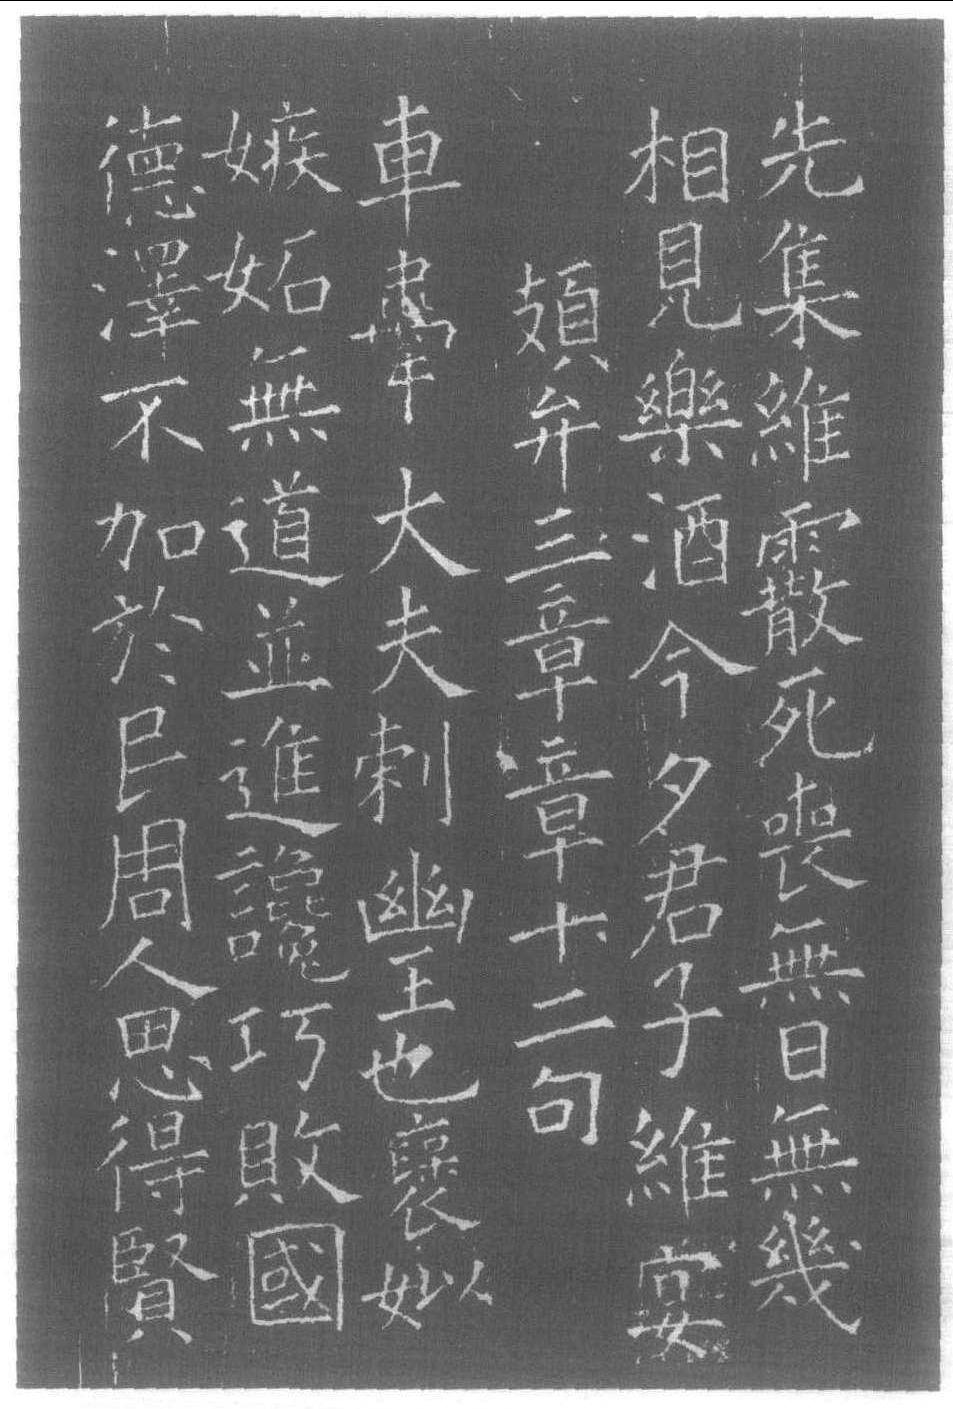 先集維霰死喪無日無幾
相見樂酒今夕君子維宴
頍弁三章章十二句
車舝大夫刺幽王也襃姒
嫉妬無道並進讒巧敗國
德澤不加於民周人思得賢